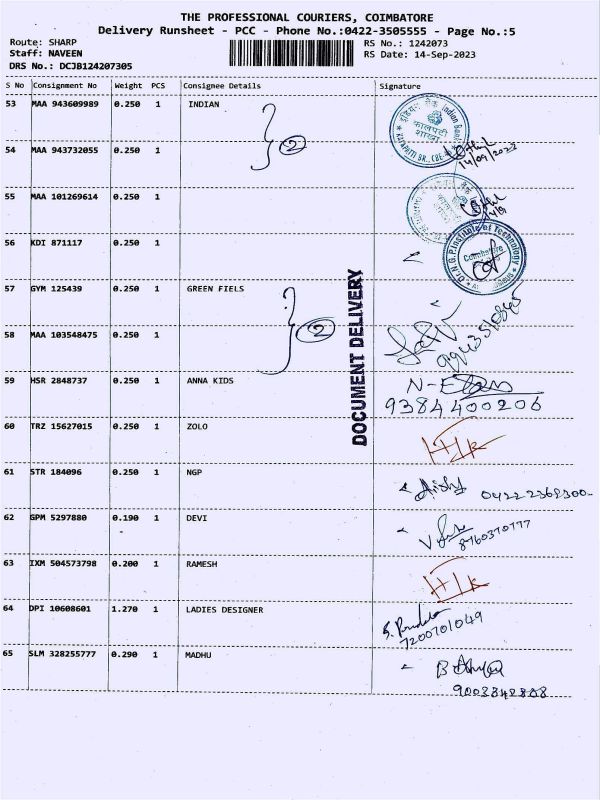 THE PROFESSIONAL COURIERS, COIMBATORE
Delivery Runsheet - PCC - Phone No.:0422-3505555 - Page No.:5
Route: SHARP
RS No.: 1242073
Staff: NAVEEN
RS Date: 14-Sep-2023
DRS No.: DCJB124207305
S No Consignment No Weight PCS Consignee Details Signature
53 MAA 943609989 0.250 1 INDIAN
54 MAA 943732055 0.250 1
2
14/09/2023
55 MAA 101269614 0.250 1
56 KDI 871117 0.250 1
57 GYM 125439 0.250 1 GREEN FIELS
58 MAA 103548475 0.250 1
2
DOCUMENT DELIVERY
59 HSR 2848737 0.250 1 ANNA KIDS
9384400206
60 TRZ 15627015 0.250 1 ZOLO
61 STR 184096 0.250 1 NGP
62 GPM 5297880 0.190 1 DEVI
8760370777
63 IXM 504573798 0.200 1 RAMESH
64 DPI 10608601 1.270 1 LADIES DESIGNER
7200701049
65 SLM 328255777 0.290 1 MADHU